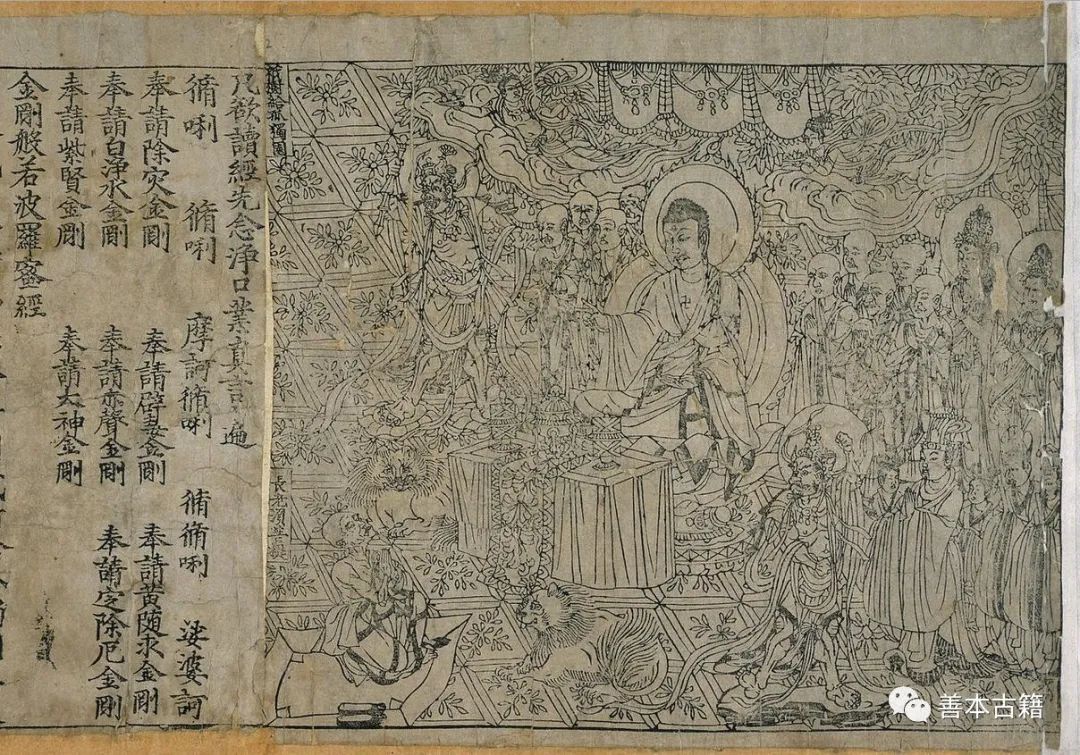 祇樹給孤獨園
長老須菩提
凡欲讀經先念淨口業真言遍
脩唎 脩唎 摩訶脩唎 脩脩唎 娑婆訶
奉請除灾金剛 奉請辟毒金剛 奉請黄随求金剛
奉請白淨水金剛 奉請赤聲金剛 奉請定除厄金剛
奉請紫賢金剛 奉請大神金剛
金剛般若波羅蜜經
善本古籍